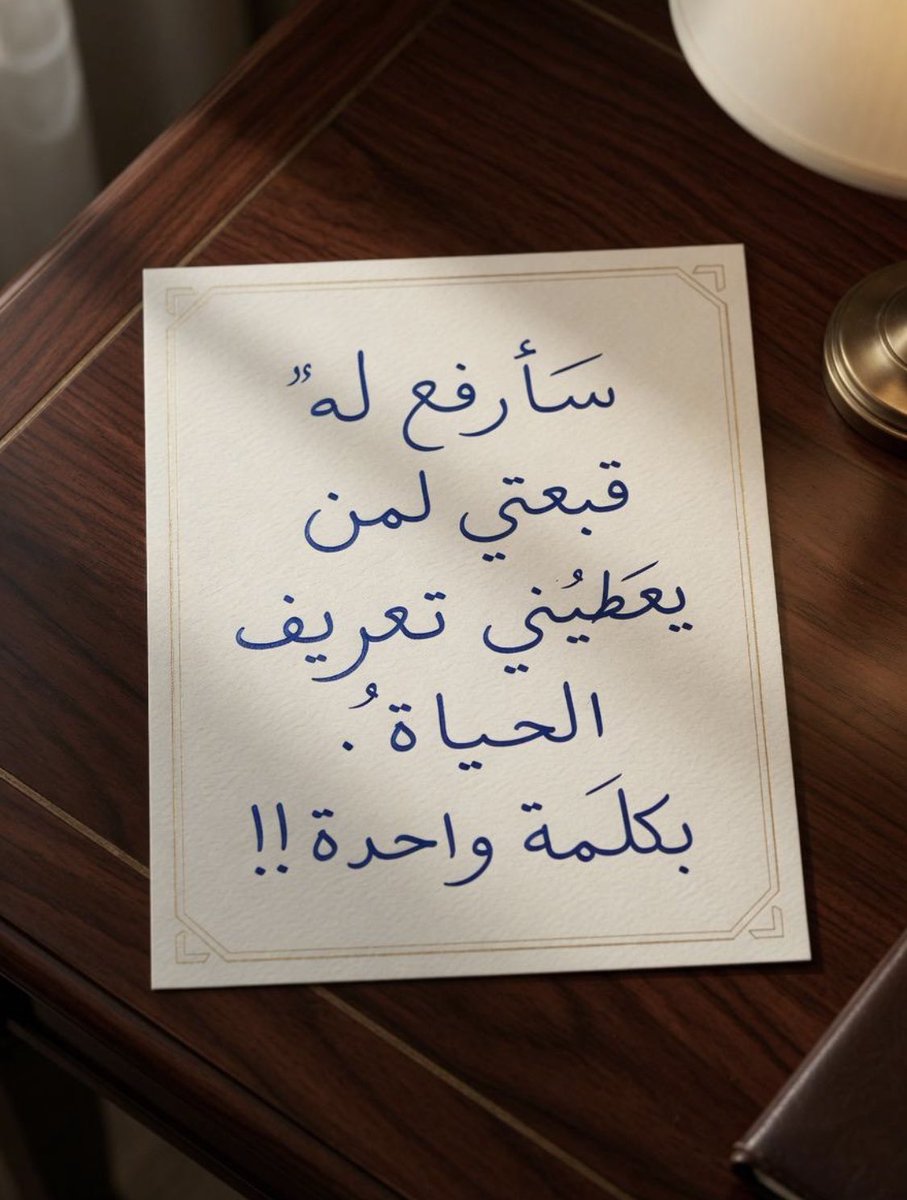 سَأرفع لهٌ
قبعتي لمن
يعَطيُني تعريف
الحياةُ .
بكلَمة واحدة !!